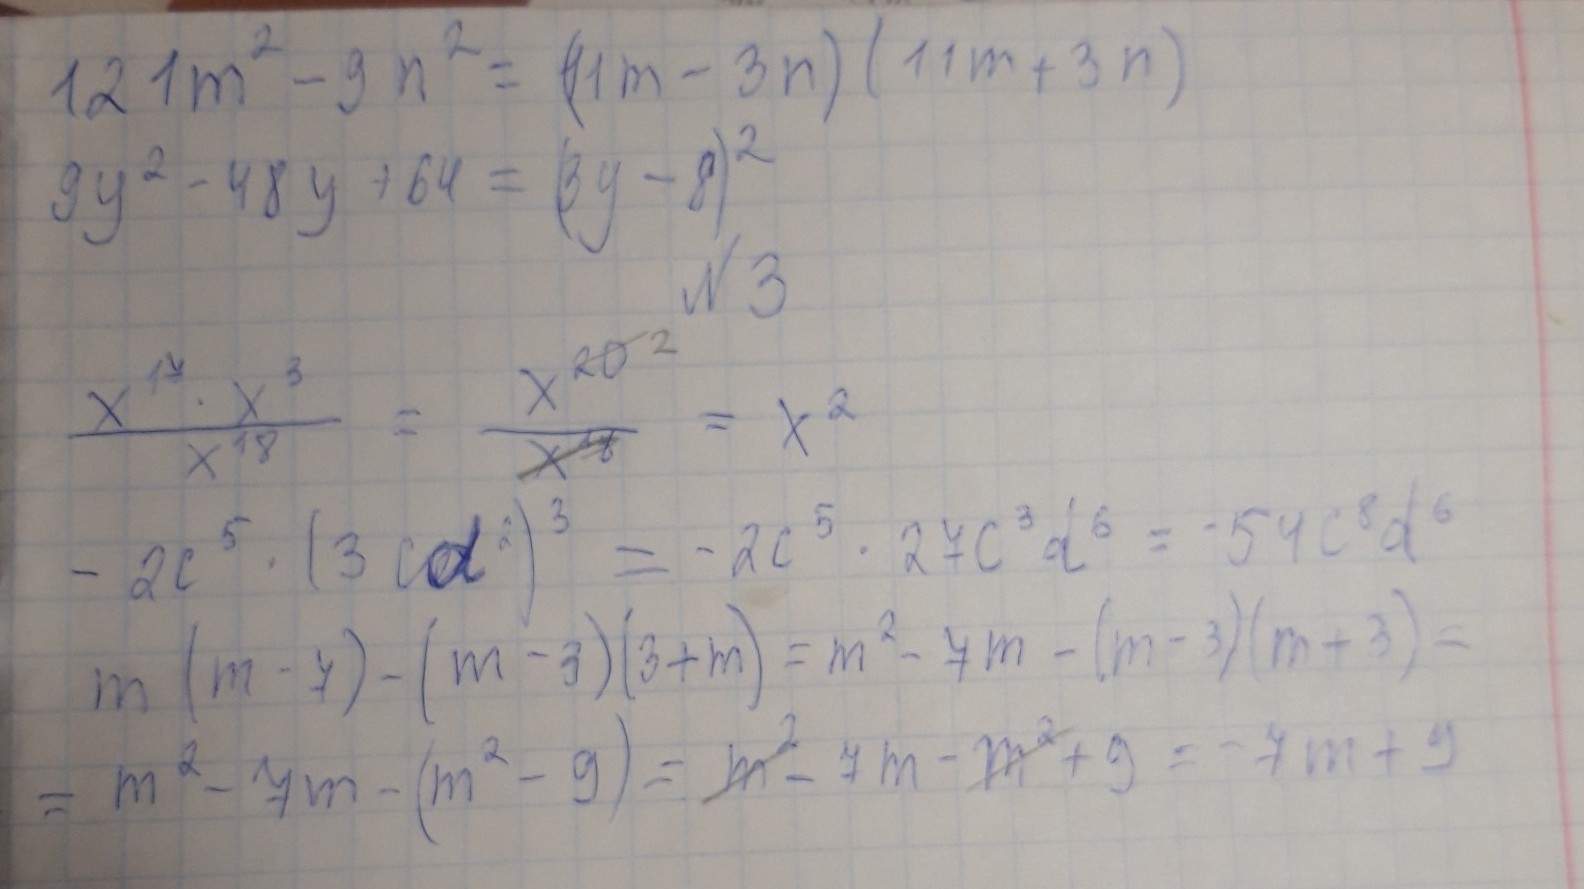 121m² - 9n² = (11m - 3n)(11m + 3n)
9y² - 48y + 64 = (3y - 8)²
№3
x¹⁷ · x³ / x¹⁸ = x²⁰ ² / x¹⁸ = x²
- 2c⁵ · (3cd²)³ = - 2c⁵ · 27c³d⁶ = - 54c⁸d⁶
m(m - 7) - (m - 3)(3 + m) = m² - 7m - (m - 3)(m + 3) =
= m² - 7m - (m² - 9) = m² - 7m - m² + 9 = - 7m + 9